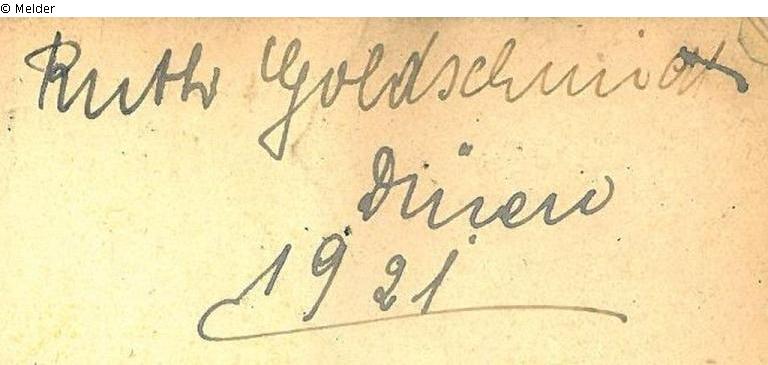 © Melder
Ruth Goldschmidt
Düren
1921